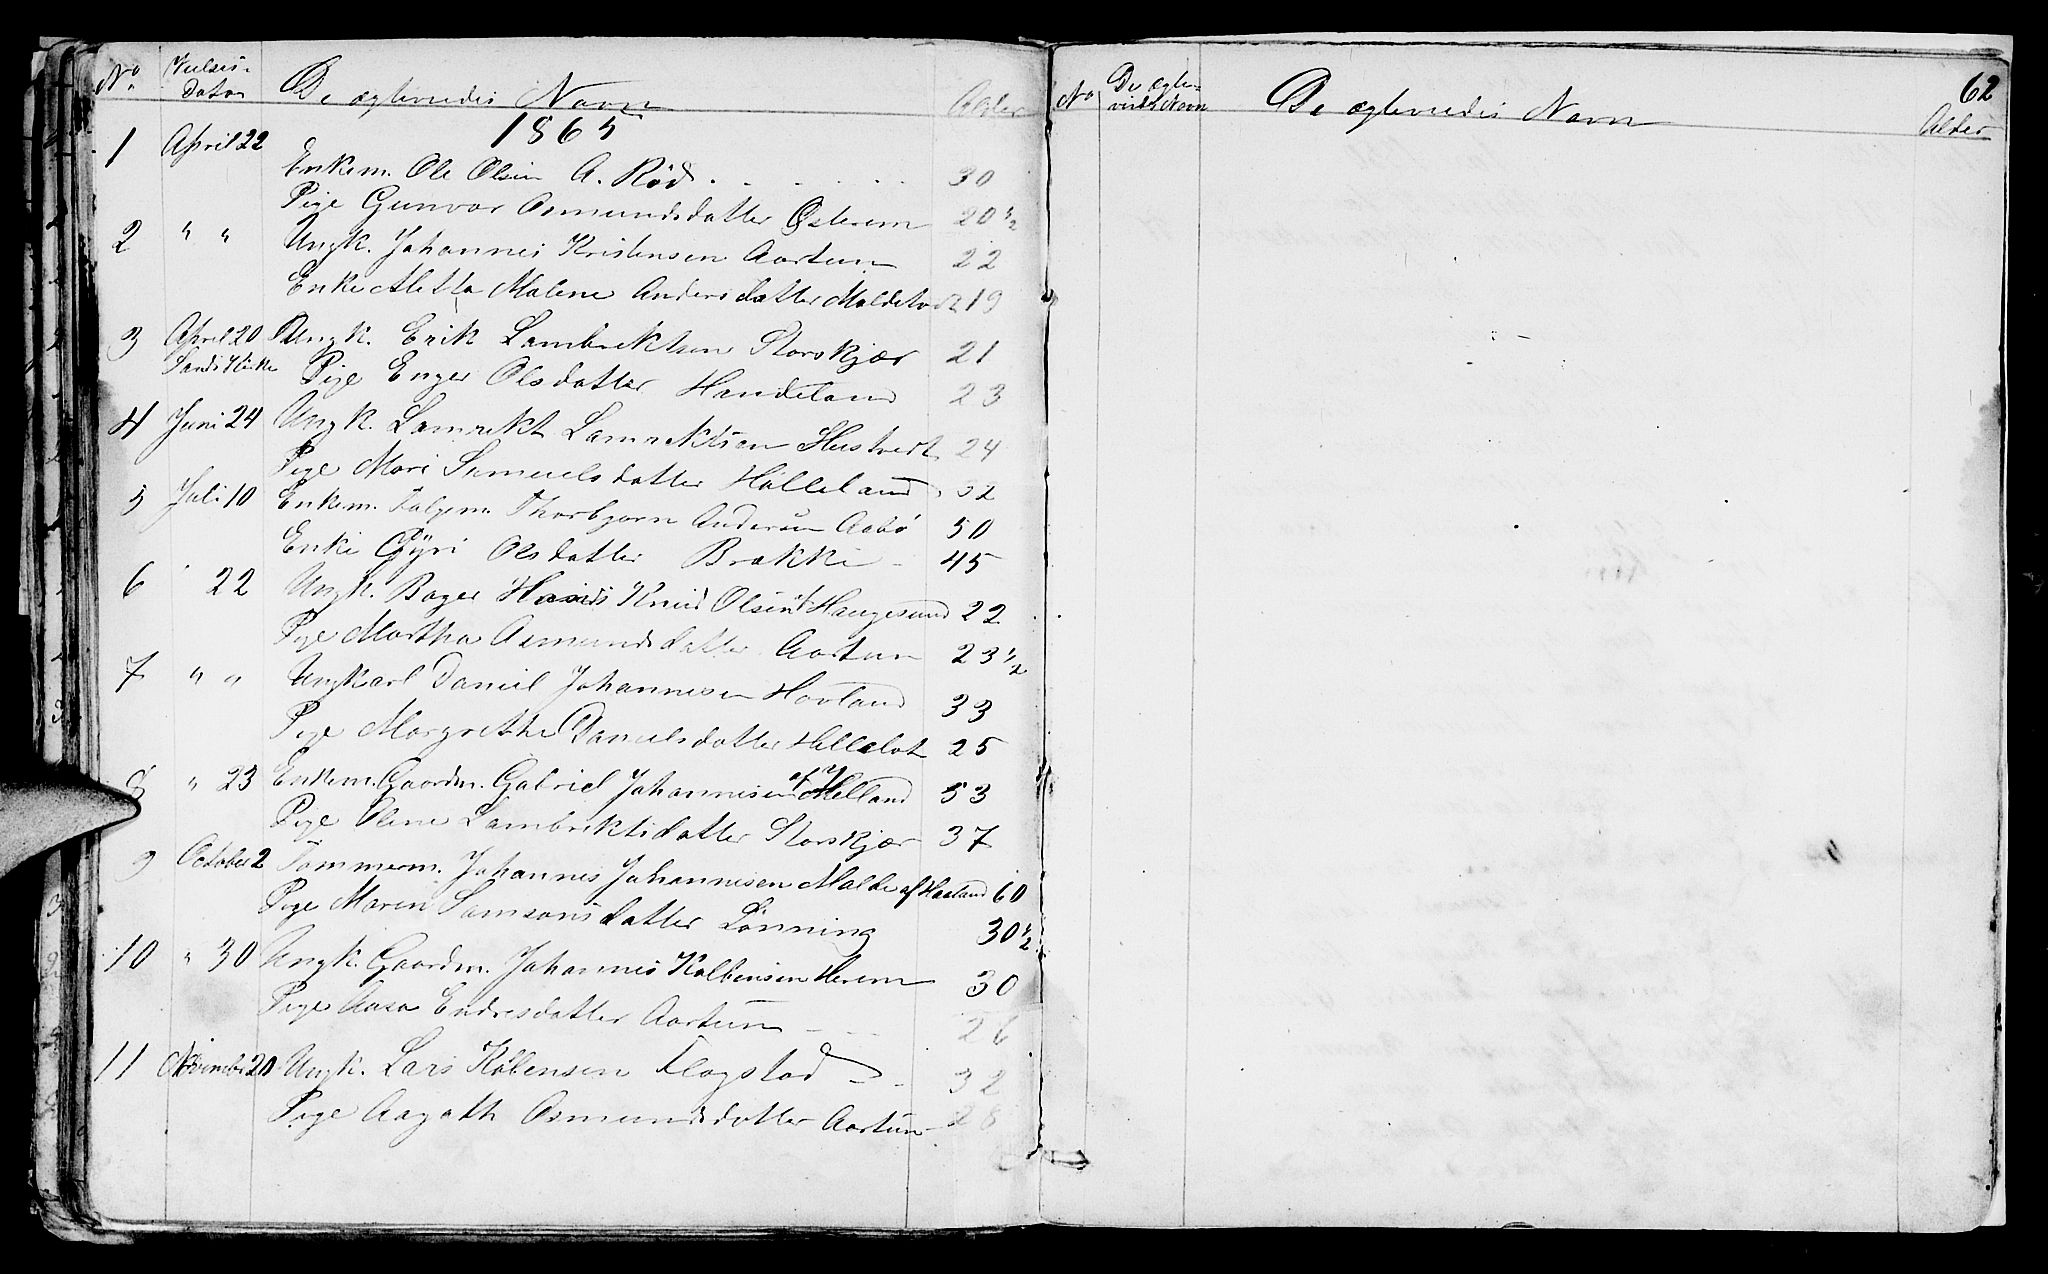 No. Vielses-Dato De ægteviedes Navn Alder
1865
1 April 22 Enkem. Ole Olsen A. Röd 30
Pige Gunvor Asmundsdatter Österem 20 1/2
2 " " Ungk. Johannes Kristensen Aartun 22
Enke Metta Malene Andersdatter 19
3 April 20 Ungk. Erik Lambrektsen Storskjær 21
Pige Enger Olsdatter Handeland 23
4 Juni 24 Ungk. Lamrekt Lamrektsen Hustvedt 24
Pige Mari Samuelsdatter Hålleland 32
5 Juli 10 Enkem. Thorbjørn Andersen Aabö 50
Enke Gÿri Olsdatter Brekke 45
6 22 Ungk. Bager Knud Olsen Haugesund 22
Pige Martha Asmundsdatter Aartun 23 1/2
7 " " Ungkarl Daniel Johannesen Hovland 33
Pige Margrethe Danielsdatter 25
8 " 23 Enkem. Gaardm. Gabriel Johannesen af Helland 53
Pige Oline Lambrektsdatter Storskjær 37
9 October 2 Tømmerm. Johannes Johannesen Malde af Haaland 60
Pige Maren Samsonsdatter Lönning 30 1/2
10 " 30 Ungk. Gaardm. Johannes Kolbensen Herem 30
Pige Aasa Endresdatter Aartun 26
11 November 20 Ungk. Lars Kolbensen Flogstad 32
Pige Aagoth Osmundsdatter Aartun 28
62
No De ægteviedes Navn De ægteviedes Navn Alder